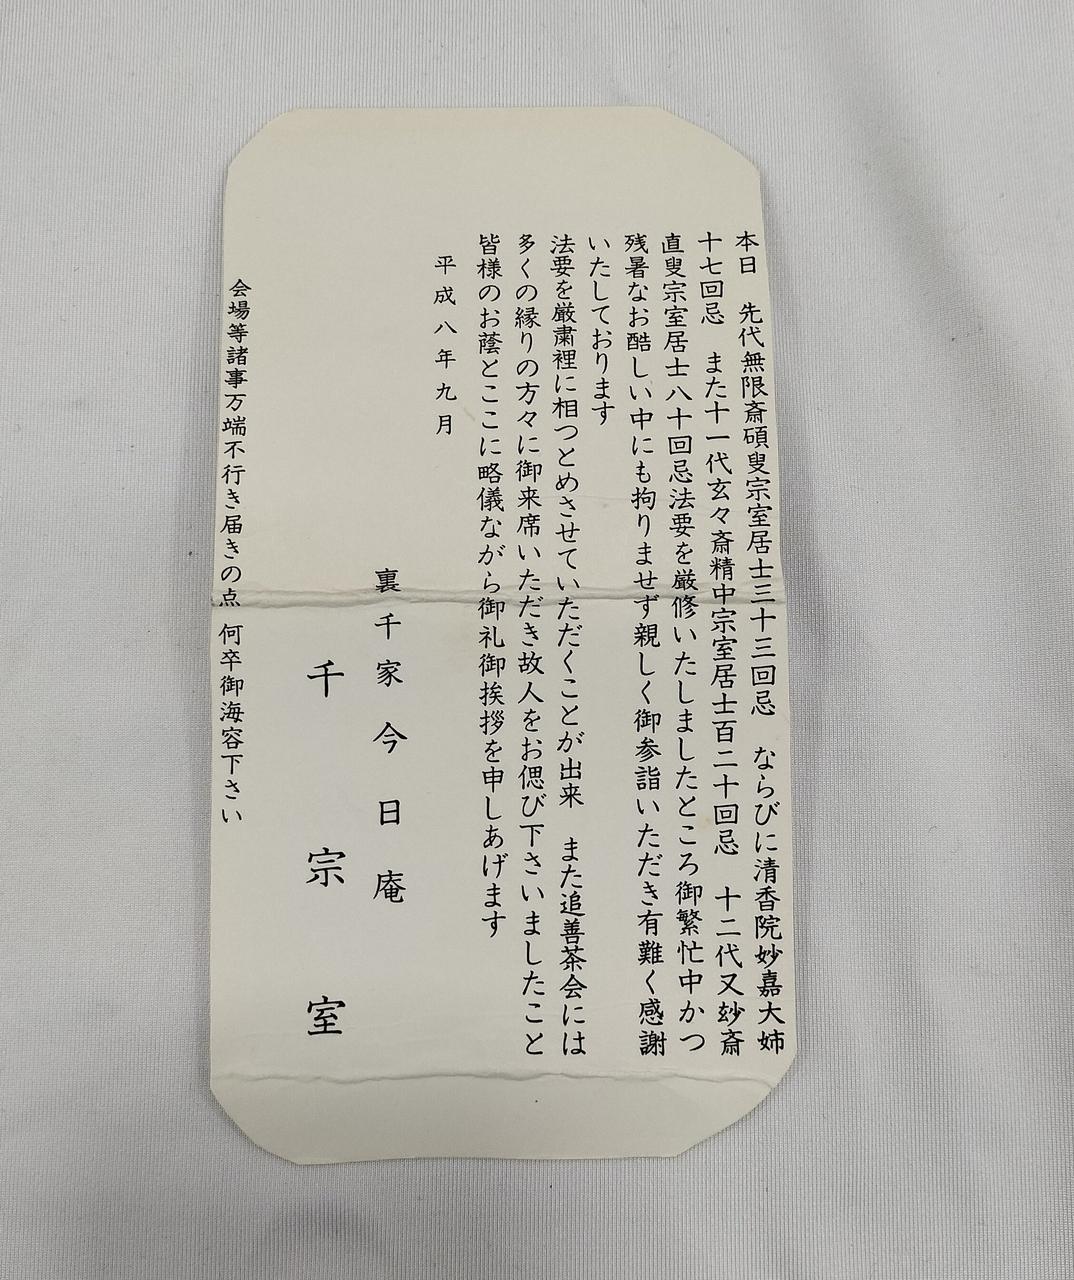 本日　先代無限斎碩叟宗室居士三十三回忌　ならびに清香院妙嘉大姉
十七回忌　また十一代玄々斎精中宗室居士百二十回忌　十二代又玅斎
直叟宗室居士八十回忌法要を厳修いたしましたところ御繁忙中かつ
残暑なお酷しい中にも拘りませず親しく御参詣いただき有難く感謝
いたしております
法要を厳粛裡に相つとめさせていただくことが出来　また追善茶会には
多くの縁りの方々に御来席いただき故人をお偲び下さいましたこと
皆様のお蔭とここに略儀ながら御礼御挨拶を申しあげます
平成八年九月
裏千家今日庵
千宗室
会場等諸事万端不行き届きの点　何卒御海容下さい